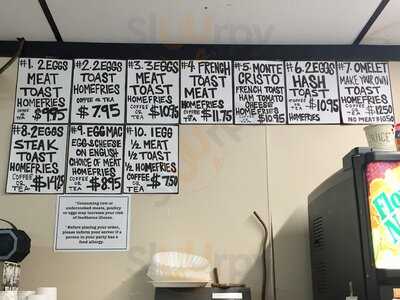 #1. 2 EGGS
MEAT
TOAST
HOMEFRIES
COFFEE OR TEA $9.95
#2. 2 EGGS
TOAST
HOMEFRIES
COFFEE OR TEA
$7.95
#3. 3 EGGS
MEAT
TOAST
HOMEFRIES
COFFEE OR TEA $10.95
#4 FRENCH
TOAST
MEAT
HOMEFRIES
COFFEE OR TEA $11.75
#5. MONTE
CRISTO
FRENCH TOAST
HAM TOMATO
CHEESE
HOMEFRIES
COFFEE OR TEA $10.95
#6. 2 EGGS
HASH
TOAST
COFFEE OR TEA $10.95
HOMEFRIES
#7. OMELET
MAKE YOUR OWN
TOAST
HOMEFRIES
COFFEE OR TEA $12.50
NO MEAT
#8. 2 EGGS
STEAK
TOAST
HOMEFRIES
COFFEE OR TEA
#9. EGG MAC
EGG & CHEESE
ON ENGLISH
CHOICE OF MEAT
HOMEFRIES
COFFEE OR TEA $8.95
#10. 1 EGG
1/2 MEAT
1/2 TOAST
1/2 HOMEFRIES
COFFEE OR TEA $7.50
"Consuming raw or
undercooked meats, poultry
or eggs may increase your risk of
foodborne illness.
"Before placing your order,
please inform your server if
a person in your party has a
food allergy.